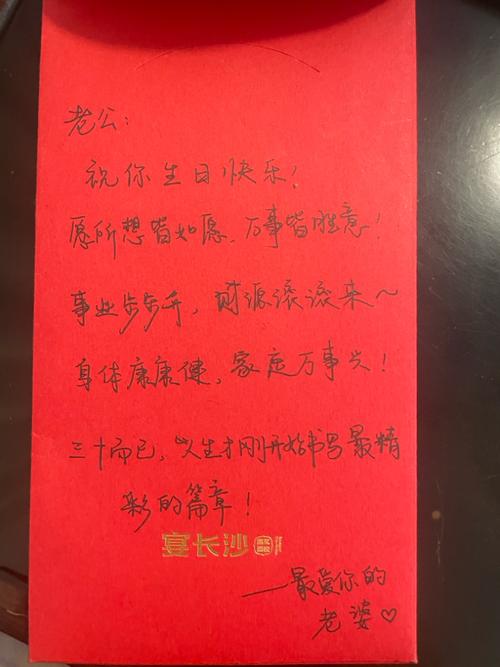 老公：
祝你生日快乐！
愿所想皆如愿、万事皆胜意！
事业步步升，财源滚滚来～
身体康康健，家庭万事兴！
三十而已，人生才刚开始书写最精
彩的篇章！
宴长沙
——最爱你的
老婆♡